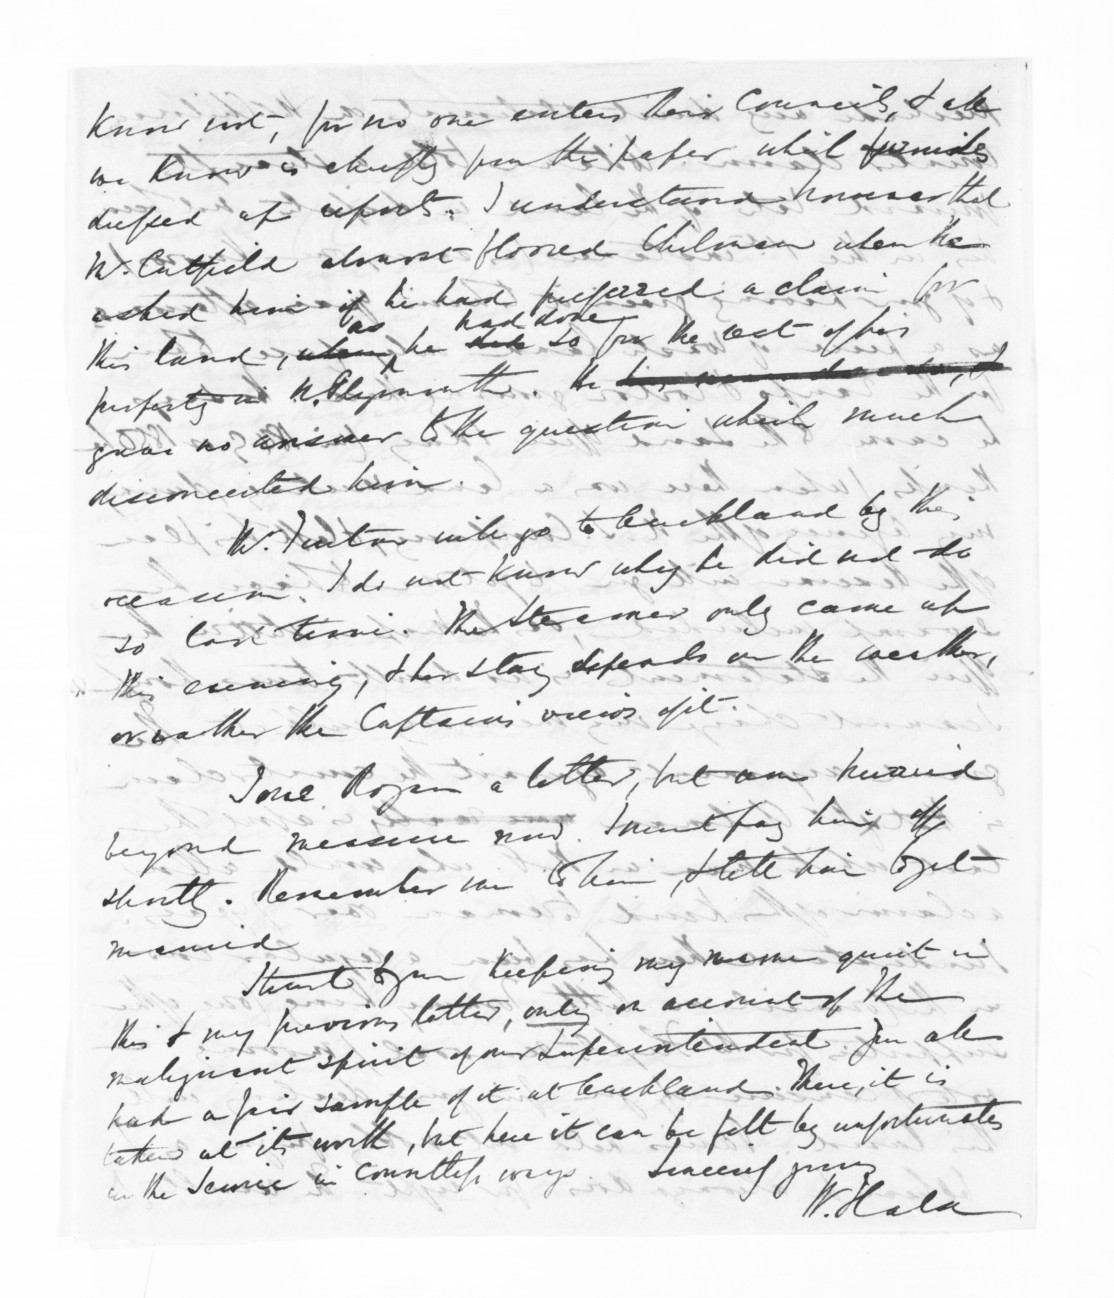 know not, for no one enters their Councils, & all
we know is chiefly from the paper which furnishes
of reports. I understand however that
Mr. Cutfield almost floored Chilman when he
asked him if he had preferred a claim for
this land, as he had done so for the rest of his
property in N. Plymouth. He
gave no answer to the question which much
disconcerted him.
Mr. Turton will go to Auckland by this
occasion. I do not know why he did not do
so last time. The Steamer only came up
this evening, & her stay depends on the weather,
or rather the Captain's views of it.
I owe Rogan a letter, but am hurried
beyond measure now. I must pay him off
shortly. Remember me to him, & tell him to get
married
I trust to your keeping my name quiet in
this & my previous letter, only on account of the
malignant spirit of our Superintendent. You all
had a fair sample of it at Auckland. There, it is
taken at its worth, but here it can be felt by unfortunates
in the Service in countless ways. Sincerely yours
W. Halse